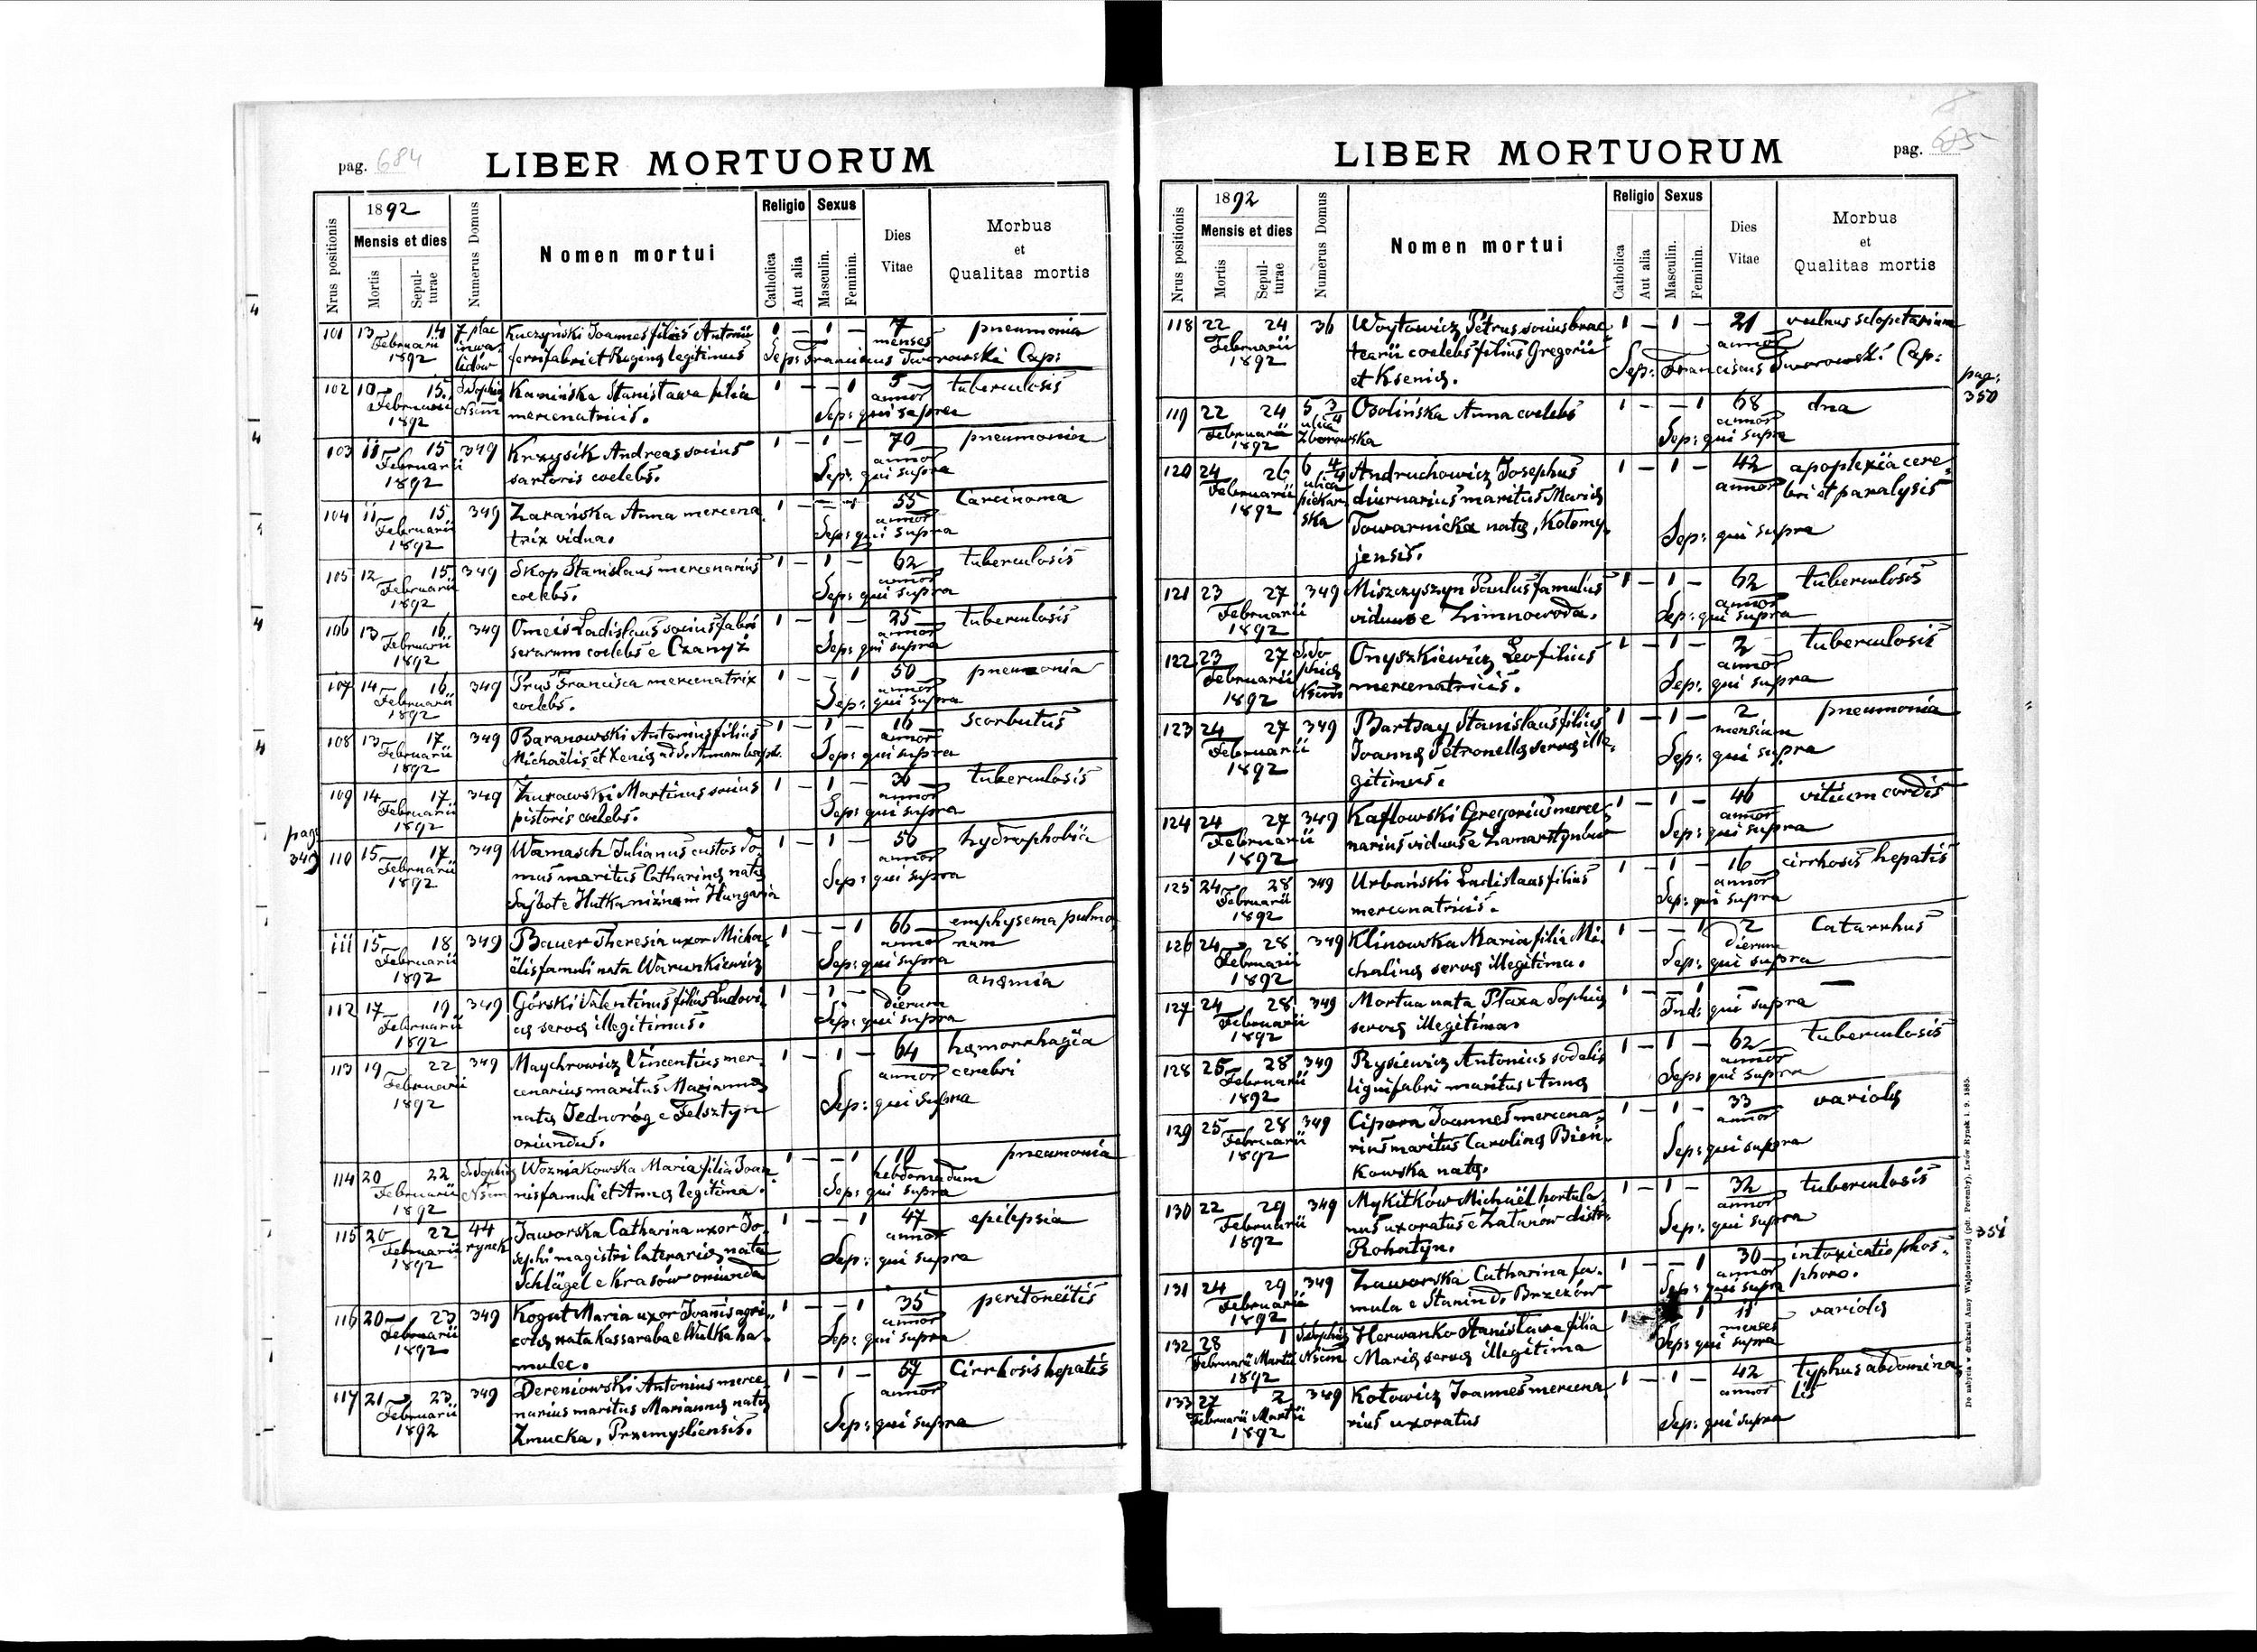 pag. 684
LIBER MORTUORUM
Nrus positionis
1892
Mensis et dies
Mortis
Sepulturae
Numerus Domus
Nomen mortui
Religio
Catholica
Aut alia
Sexus
Masculin.
Feminin.
Dies
Vitae
Morbus
et
Qualitas mortis
101 13 14 7 plac Kuczyński Joannes filius Antonii 1 — 1 — 7 pneumonia
Februarii inwa menses
1892 lidów ferrifabri et Reginę legitimus Sep: Franciscus Tworowski Cap:
102 10 15 S. Sophię Kamińska Stanisława filia 1 — — 1 5 tuberculosis
Februarii Nsum mercenatricis. annor
1892 Sep: qui supra
103 11 15 349 Krzysik Andreas socius 1 — 1 — 70 pneumonia
Februarii sartoris coelebs. annor
1892 Sep: qui supra
104 11 15 349 Zarańska Anna mercena 1 — 55 Carcinoma
Februarii trix vidua. annor
1892 Sep: qui supra
105 12 15 349 Skop Stanislaus mercenarius 1 — 1 — 62 tuberculosis
Februarii coelebs. annor
1892 Sep: qui supra
106 13 16 349 Omeis Ladislaus socius fabri 1 — 1 — 25 tuberculosis
Februarii serarum coelebs e Czanyż annor
1892 Sep: qui supra
107 14 16 349 Prus Francisca mercenatrix 1 — — 1 50 pneumonia
Februarii coelebs. annor
1892 Sep: qui supra
108 13 17 349 Baranowski Antonius filius 1 — 1 — 16 scorbutus
Februarii Michaëlis et Xenię ad S. Annam annor
1892 Sep: qui supra
109 14 17 349 Żurawski Martinus socius 1 — 1 — 36 tuberculosis
Februarii pistoris coelebs. annor
1892 Sep: qui supra
pag:
349
110 15 17 349 Wamasch Julianus custos do 1 — 1 — 56 hydrophobia
Februarii mus maritus Catharinę natę annor
1892 Sajbot e Hutka niżna in Hungaria Sep: qui supra
111 15 18 349 Bauer Theresia uxor Micha 1 — — 1 66 emphysema pulmo
Februarii ëlis famuli nata Warunkiewicz annor num
1892 Sep: qui supra
112 17 19 349 Górski Valentinus filius Ludovi 1 — 1 — 6 anęmia
Februarii cę servę illegitimus. dierum
1892 Sep: qui supra
113 19 22 349 Maychrowicz Vincentius mer 1 — 1 — 64 hęmorrhagia
Februarii cenarius maritus Mariannę annor cerebri
1892 natę Jednoróg e Felsztyn Sep: qui supra
oriundus.
114 20 22 S. Sophię Wozniakowska Maria filia Joan 1 — — 1 10 pneumonia
Februarii Nsum nis famuli et Annę legitima. hebdomadum
1892 Sep: qui supra
115 20 22 44 Jaworska Catharina uxor Jo 1 — — 1 47 epilepsia
Februarii rynek sephi magistri laterarię nata annor
1892 Schlägel e Krasów oriunda Sep: qui supra
116 20 23 349 Kogut Maria uxor Joannis agri 1 — — 1 35 peritoneitis
Februarii colę nata Kassaraba e Wulka ha annor
1892 mulec. Sep: qui supra
117 21 23 349 Dereniowski Antonius merce 1 — 1 — 57 Cirrhosis hepatis
Februarii narius maritus Mariannę natę annor
1892 Zmucka, Przemysliensis. Sep: qui supra
pag. 685
LIBER MORTUORUM
Nrus positionis
1892
Mensis et dies
Mortis
Sepulturae
Numerus Domus
Nomen mortui
Religio
Catholica
Aut alia
Sexus
Masculin.
Feminin.
Dies
Vitae
Morbus
et
Qualitas mortis
118 22 24 36 Woytowicz Petrus socius brac 1 — 1 — 21 vulnus sclopetarium
Februarii tearii coelebs filius Gregorii annor
1892 et Ksenię. Sep: Franciscus Tworowski Cap:
pag:
350
119 22 24 5 3/4 Osolińska Anna coelebs 1 — — 1 68 dna
Februarii ulica annor
1892 Zborowska Sep: qui supra
120 24 26 6 4/4 Andruchowicz Josephus 1 — 1 — 42 apoplexia cere
Februarii ulica diurnarius maritus Marię annor bri et paralysis
1892 piekarska Towarnicka natę, Kołomy Sep: qui supra
jensis.
121 23 27 349 Miszczyszyn Paulus famulus 1 — 1 — 62 tuberculosis
Februarii viduus e Zimnowoda. annor
1892 Sep: qui supra
122 23 27 S. So Onyszkiewicz Leo filius 1 — 1 — 2 tuberculosis
Februarii phię mercenatricis. annor
1892 Nsum Sep: qui supra
123 24 27 349 Bartsay Stanislaus filius 1 — 1 — 2 pneumonia
Februarii Joannę Petronellę servę ille mensium
1892 gitimus. Sep: qui supra
124 24 27 349 Kaflowski Gregorius merce 1 — 1 — 46 vitium cordis
Februarii narius viduus e Zamarstynów annor
1892 Sep: qui supra
125 24 28 349 Urbański Ladislaus filius 1 — 1 — 16 cirrhosis hepatis
Februarii mercenatricis. annor
1892 Sep: qui supra
126 24 28 349 Klinowska Maria filia Mi 1 — — 1 2 Catarrhus
Februarii chalinę servę illegitima. dierum
1892 Sep: qui supra
127 24 28 349 Mortua nata Płaxa Sophię 1 — — 1 — —
Februarii servę illegitima. Ind: qui supra
1892
128 25 28 349 Rysiewicz Antonius sodalis 1 — 1 — 62 tuberculosis
Februarii lignifabri maritus Annę annor
1892 Sep: qui supra
129 25 28 349 Cipora Joannes mercena 1 — 1 — 33 variolę
Februarii rius maritus Carolinę Bień annor
1892 kowska natę. Sep: qui supra
130 22 29 349 Mykitków Michaël hortula 1 — 1 — 32 tuberculosis
Februarii nus uxoratus e Załanów distr. annor
1892 Rohatyn. Sep: qui supra
351
131 24 29 349 Zaworska Catharina fa 1 — — 1 30 intoxicatio phos
Februarii mula e Stanin ds Brzezów annor phoro.
1892 Sep: qui supra
132 28 1 S. Sophię Herwanko Stanisława filia 1 1 11 variolę
Februarii Martii Nsum Marię servę illegitima menses
1892 Sep: qui supra
133 27 2 349 Kotowicz Joannes mercena 1 — 1 — 42 typhus abdomina
Februarii Martii rius uxoratus annor lis
1892 Sep: qui supra
Do nabycia w drukarni Anny Wajdowiczowej (pdr. Poremby), Lwów Rynek l. 9. 1885.